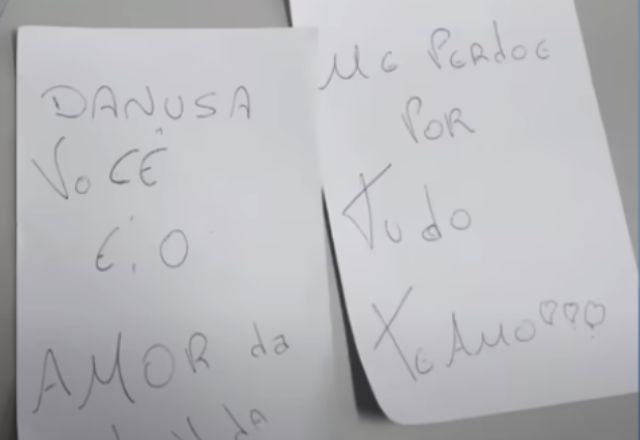 DANUSA
VOCÊ
É, O
AMOR da
Me PERdOe
POR
Tudo
Te AMO♡♡♡